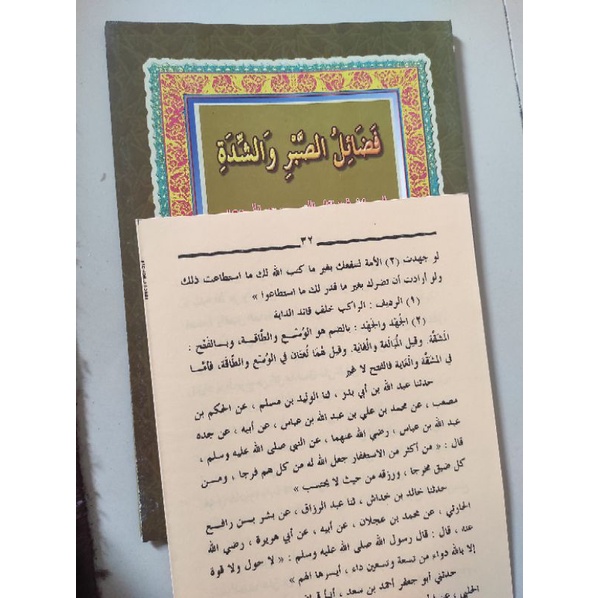 فَضَائِلُ الصَّبْرِ وَالشِّدَةِ
٣٢
لو جهدت (٢) الأمة لتنفعك بغير ما كتب الله لك ما استطاعت ذلك
ولو أرادت أن تضرك بغير ما قدر لك ما استطاعوا »
(١) الرديف : الراكب خلف قائد الدابة
(٢) الجُهْد والجَهْد : بالضم هو الوُسْع والطَّاقة ، وبالفتْح :
المَشَقَّة. وقيل المُبَالَغة والْغاية. وقيل هُمَا لُغتَان في الوُسْع والطَّاقَة، فأمَّا
في المَشقَّة والْغَاية فالفتح لا غير
حدثنا عبد الله بن أبي بدر ، لنا الوليد بن مسلم ، عن الحكم بن
مصعب ، عن محمد بن علي بن عبد الله بن عباس ، عن أبيه ، عن جده
عبد الله بن عباس ، رضي الله عنهما ، عن النبي صلى الله عليه وسلم ،
قال : « من أكثر من الاستغفار جعل الله له من كل هم فرجا ، ومن
كل ضيق مخرجا ، ورزقه من حيث لا يحتسب »
حدثنا خالد بن خداش ، لنا عبد الرزاق ، عن بشر بن رافع
الحارثي ، عن محمد بن عجلان ، عن أبيه ، عن أبي هريرة ، رضي الله
عنه ، قال : قال رسول الله صلى الله عليه وسلم : « لا حول ولا قوة
إلا بالله دواء من تسعة وتسعين داء ، أيسرها الهم »
حدثني أبو جعفر أحمد بن سعد ، أنبأ